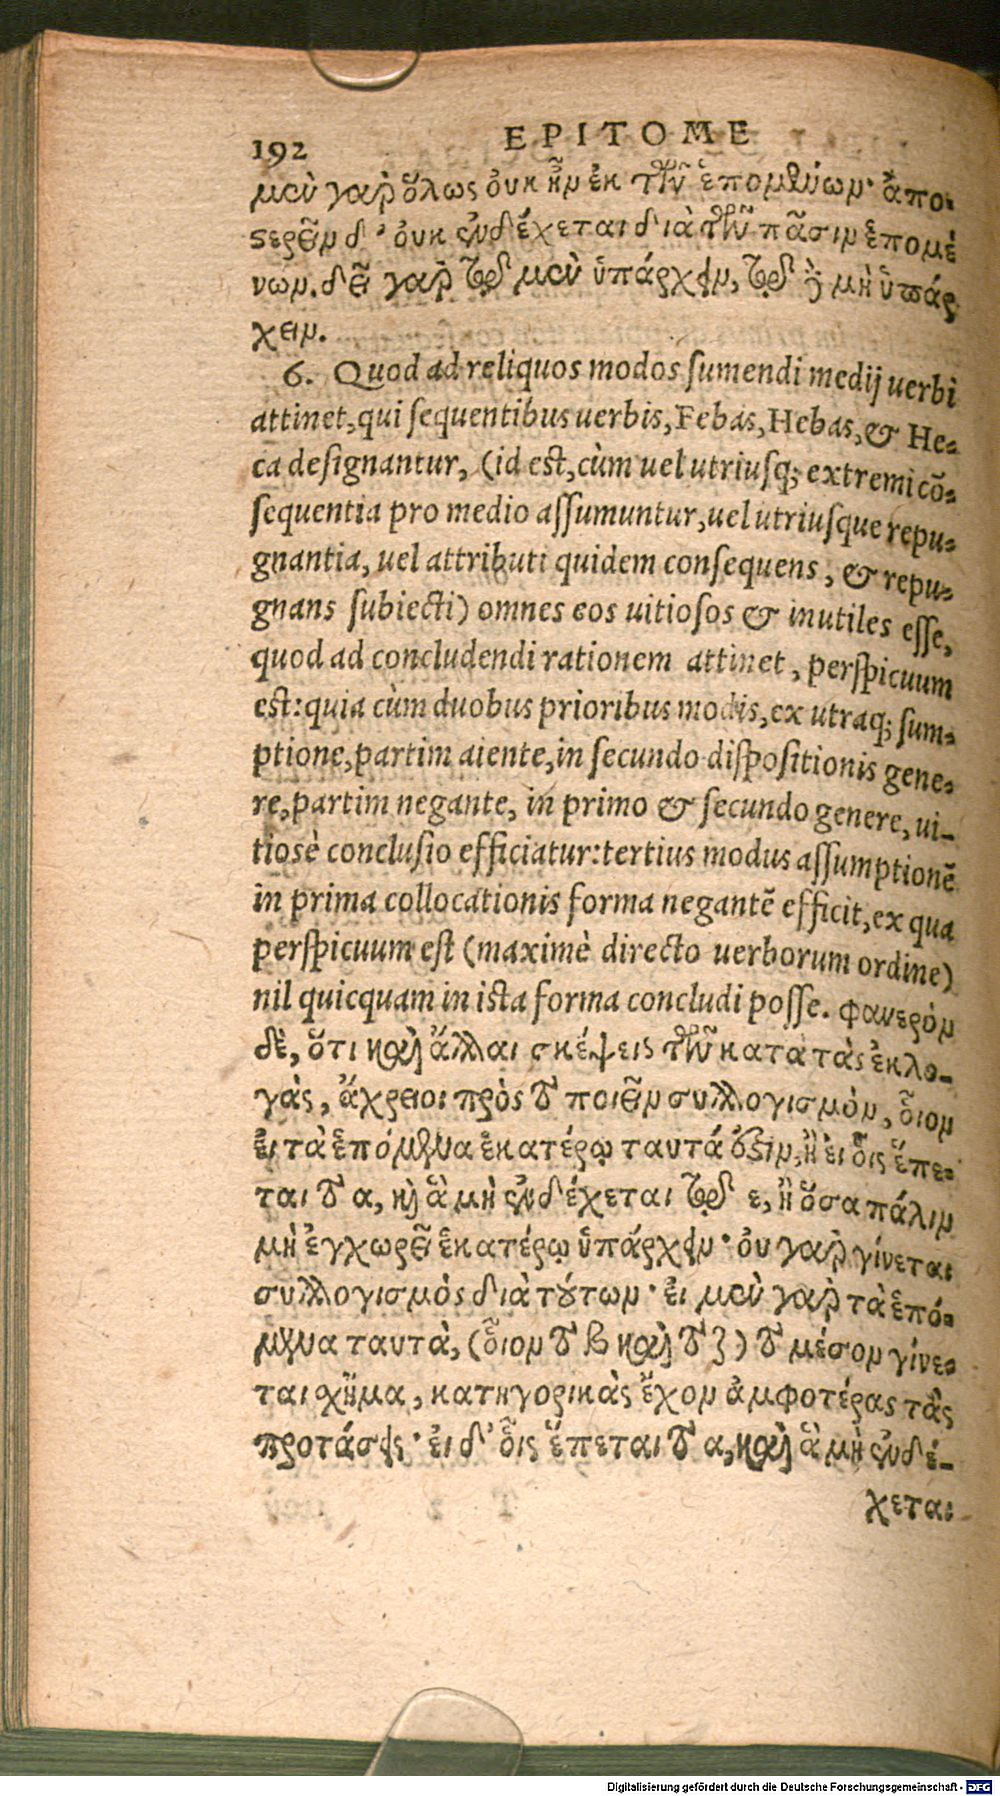 192 EPITOME
μὲν γαρ ὅλως ὀυκ ἦν ἐκ τῶν ἑπομένων· ἀπο-
στερεῖν δ᾽ ὀυκ ἐνδέχεται διὰ τῶν πᾶσιν ἑπομέ
νων. δεῖ γαρ τῷ μὲν ὑπάρχειν, τῷ δὲ μὴ ὑπάρ
χειν.
6. Quod ad reliquos modos sumendi medij uerbi
attinet, qui sequentibus uerbis, Febas, Hebas, & He-
ca designantur, (id est, cùm uel utriusq; extremi cō-
sequentia pro medio assumuntur, uel utriusque repu-
gnantia, uel attributi quidem consequens, & repu-
gnans subiecti) omnes eos uitiosos & inutiles esse,
quod ad concludendi rationem attinet, perspicuum
est: quia cùm duobus prioribus modis, ex utraq; sum-
ptione, partim aiente, in secundo dispositionis gene-
re, partim negante, in primo & secundo genere, ui-
tiosè conclusio efficiatur: tertius modus assumptionē
in prima collocationis forma negantē efficit, ex qua
perspicuum est (maximè directo uerborum ordine)
nil quicquam in ista forma concludi posse. φανερὸν
δὲ, ὅτι καὶ ἄλλαι σκέψεις τῶν κατὰ τὰς ἐκλο-
γὰς, ἄχρειοι πρὸς τὸ ποιεῖν συλλογισμὸν, ὅιον
ἐι τὰ ἑπόμενα ἑκατέρῳ ταυτά ἐστιν, ἢ ἐι ὅις ἕπε-
ται τὸ α, καὶ ἃ μὴ ἐνδέχεται τῷ ε, ἢ ὅσα πάλιν
μὴ ἐγχωρεῖ ἑκατέρῳ ὑπάρχειν· ὀυ γαρ γίνεται
συλλογισμὸς διὰ τούτων· ἐι μὲν γαρ τὰ ἑπό-
μενα ταυτὰ, (ὅιον τὸ β καὶ τὸ ζ) τὸ μέσον γίνε-
ται χῆμα, κατηγορικὰς ἔχον ἀμφοτέρας τὰς
προτάσεις· ἐι δ᾽ ὅις ἕπεται τὸ α, καὶ ἃ μὴ ἐνδέ-
χεται
Digitalisierung gefördert durch die Deutsche Forschungsgemeinschaft - DFG